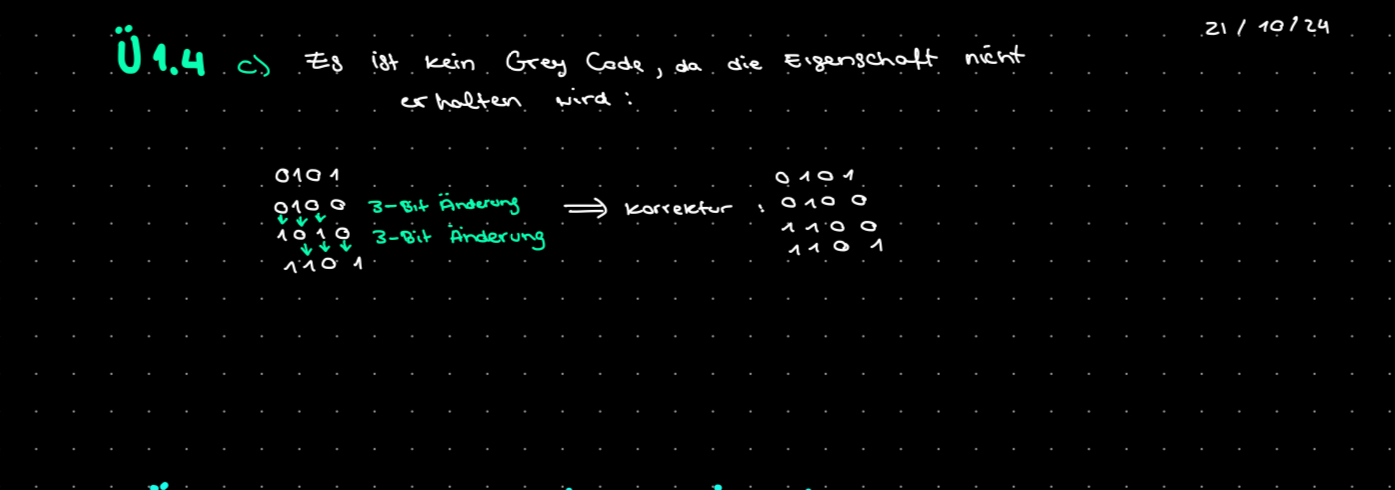 21 / 10 / 24
Ü 1.4 c) Es ist kein Grey Code, da die Eigenschaft nicht
erhalten wird:
0101
0100 3-Bit Änderung ⟹ Korrektur:
1010 3-Bit Änderung
1101
0101
0100
1100
1101